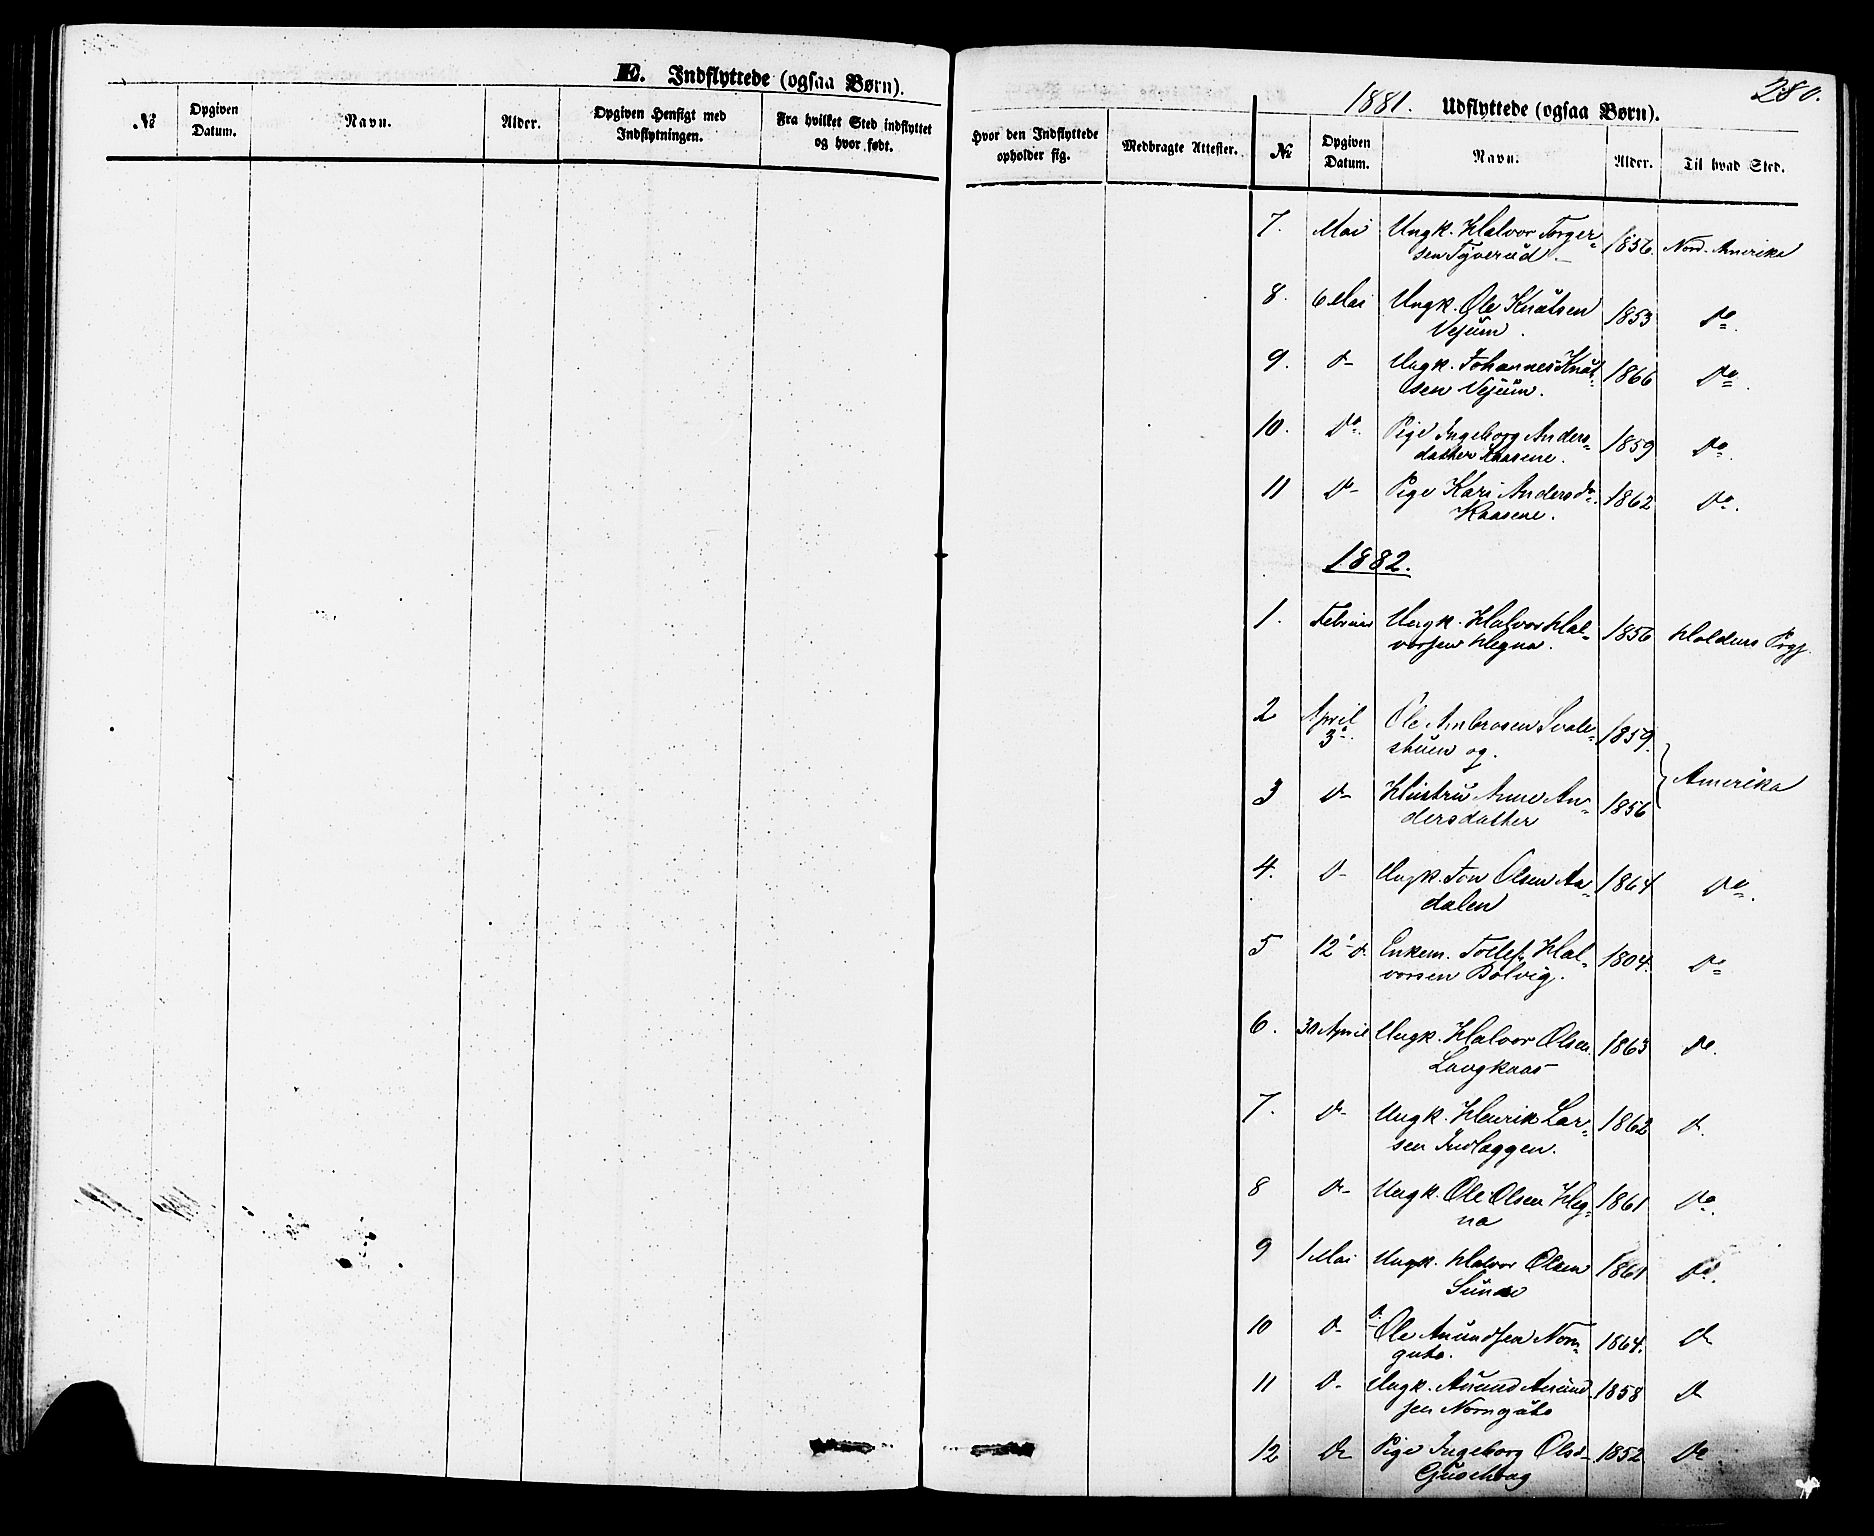 E. Indflyttede (ogsaa Børn).
№ Opgiven Datum. Navn. Alder. Opgiven Hensigt med Indflytningen. Fra hvilket Sted indflyttet og hvor født.
280.
1881. Udflyttede (ogsaa Børn).
Hvor den Indflyttede opholder sig. Medbragte Attester. № Opgiven Datum. Navn. Alder. Til hvad Sted.
7. Mai Ungk. Halvor Torger- 1856. Nord-Amerika
sen Tyverud
8. 6 Mai Ungk. Ole Knutsen 1853 Do.
Vejum
9. D- Ungk. Johannes Knut- 1866 Do.
sen Vejum.
10. Do. Pige Ingeborg Anders- 1859 Do.
datter Kaasene.
11 D- Pige Kari Andersd. 1862 Do.
Kaasene.
1882.
1. Februar Ungk. Halvor Hal- 1856 Holdens Prgj.
vorsen Hegna.
2 April Ole Ambrosen 1859.
3. og.
Amerika
3 D- Hustru Anne An- 1856
dersdatter
4. D- Ungk. Jon Olsen Aa- 1864 Do.
dalen
5 12 d. Enkem. Tollef Hal- 1804. Do
vorsen Bolvig.
6. 30 April Ungk. Halvor Olsen 1863 Do.
Langkaas
7. D- Ungk. Henrik Lar- 1862 D.
sen Indlaggen.
8 D- Ungk. Ole Olsen Heg- 1861 Do.
na
9 1 Mai Ungk. Halvor Olsen 1861 Do.
Sunde
10 D- D. Ole Amundsen Nom- 1864. D
gute.
11 D- Ungk. Amund Amund- 1858 D
sen Nomgute
12 D Pige Ingeborg Olsd- 1852 D